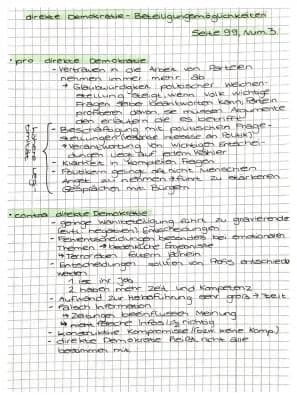 direkte Demokratie - Beteiligungsmöglichkeiten
Seite 99, Num. 3
• pro direkte Demokratie
- Vertrauen in die Arbeit von Parteien
nehmen immer mehr ab
→ Glaubwürdigkeit politischer Weichen-
stellung steigt, wenn Volk wichtige
Fragen selbe beantworten kann, Parteien
profitieren davon, sie müssen Argumente
den erläutern die es betrifft
- Beschäftigung mit politischen Frage-
stellungen (stärkere Interesse an Politik)
→ Verantwortung von wichtigen Entschei-
dungen liegt auf jedem Wähler
- Klarheit in komplexen Fragen
- Politikern gelingt oft nicht Menschen
Angst zu nehmen → führt zu stärkeren
Gesprächen mit Bürgern
• contra direkte Demokratie
- geringe Wahlbeteiligung führt zu gravierende
(evtl. negativen) Entscheidungen
- Fehlentscheidungen besonders bei emotionalen
Themen → Ergebnisse
→ Terroristen fordern
- Entscheidungen sollten von Profis entschieden
werden
1. ist ihr Job
2. haben mehr Zeit und Kompetenz
- Aufwand zur Herbeiführung sehr groß + Zeit
- Falsch Information
→ Zeitungen beeinflussen Meinung
→ Falsche Infos
- konstruktive Kompromisse (bzw. keine Komp.)
- direkte Demokratie heißt nicht alle
bestimmen mit